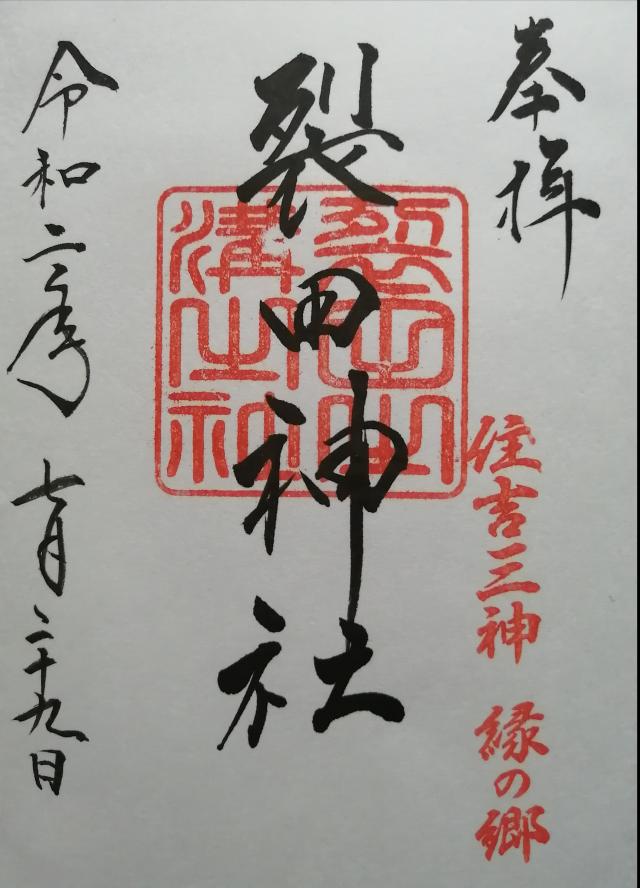 奉拝
住吉三神 縁の郷
裂田神社
令和二年 七月二十九日